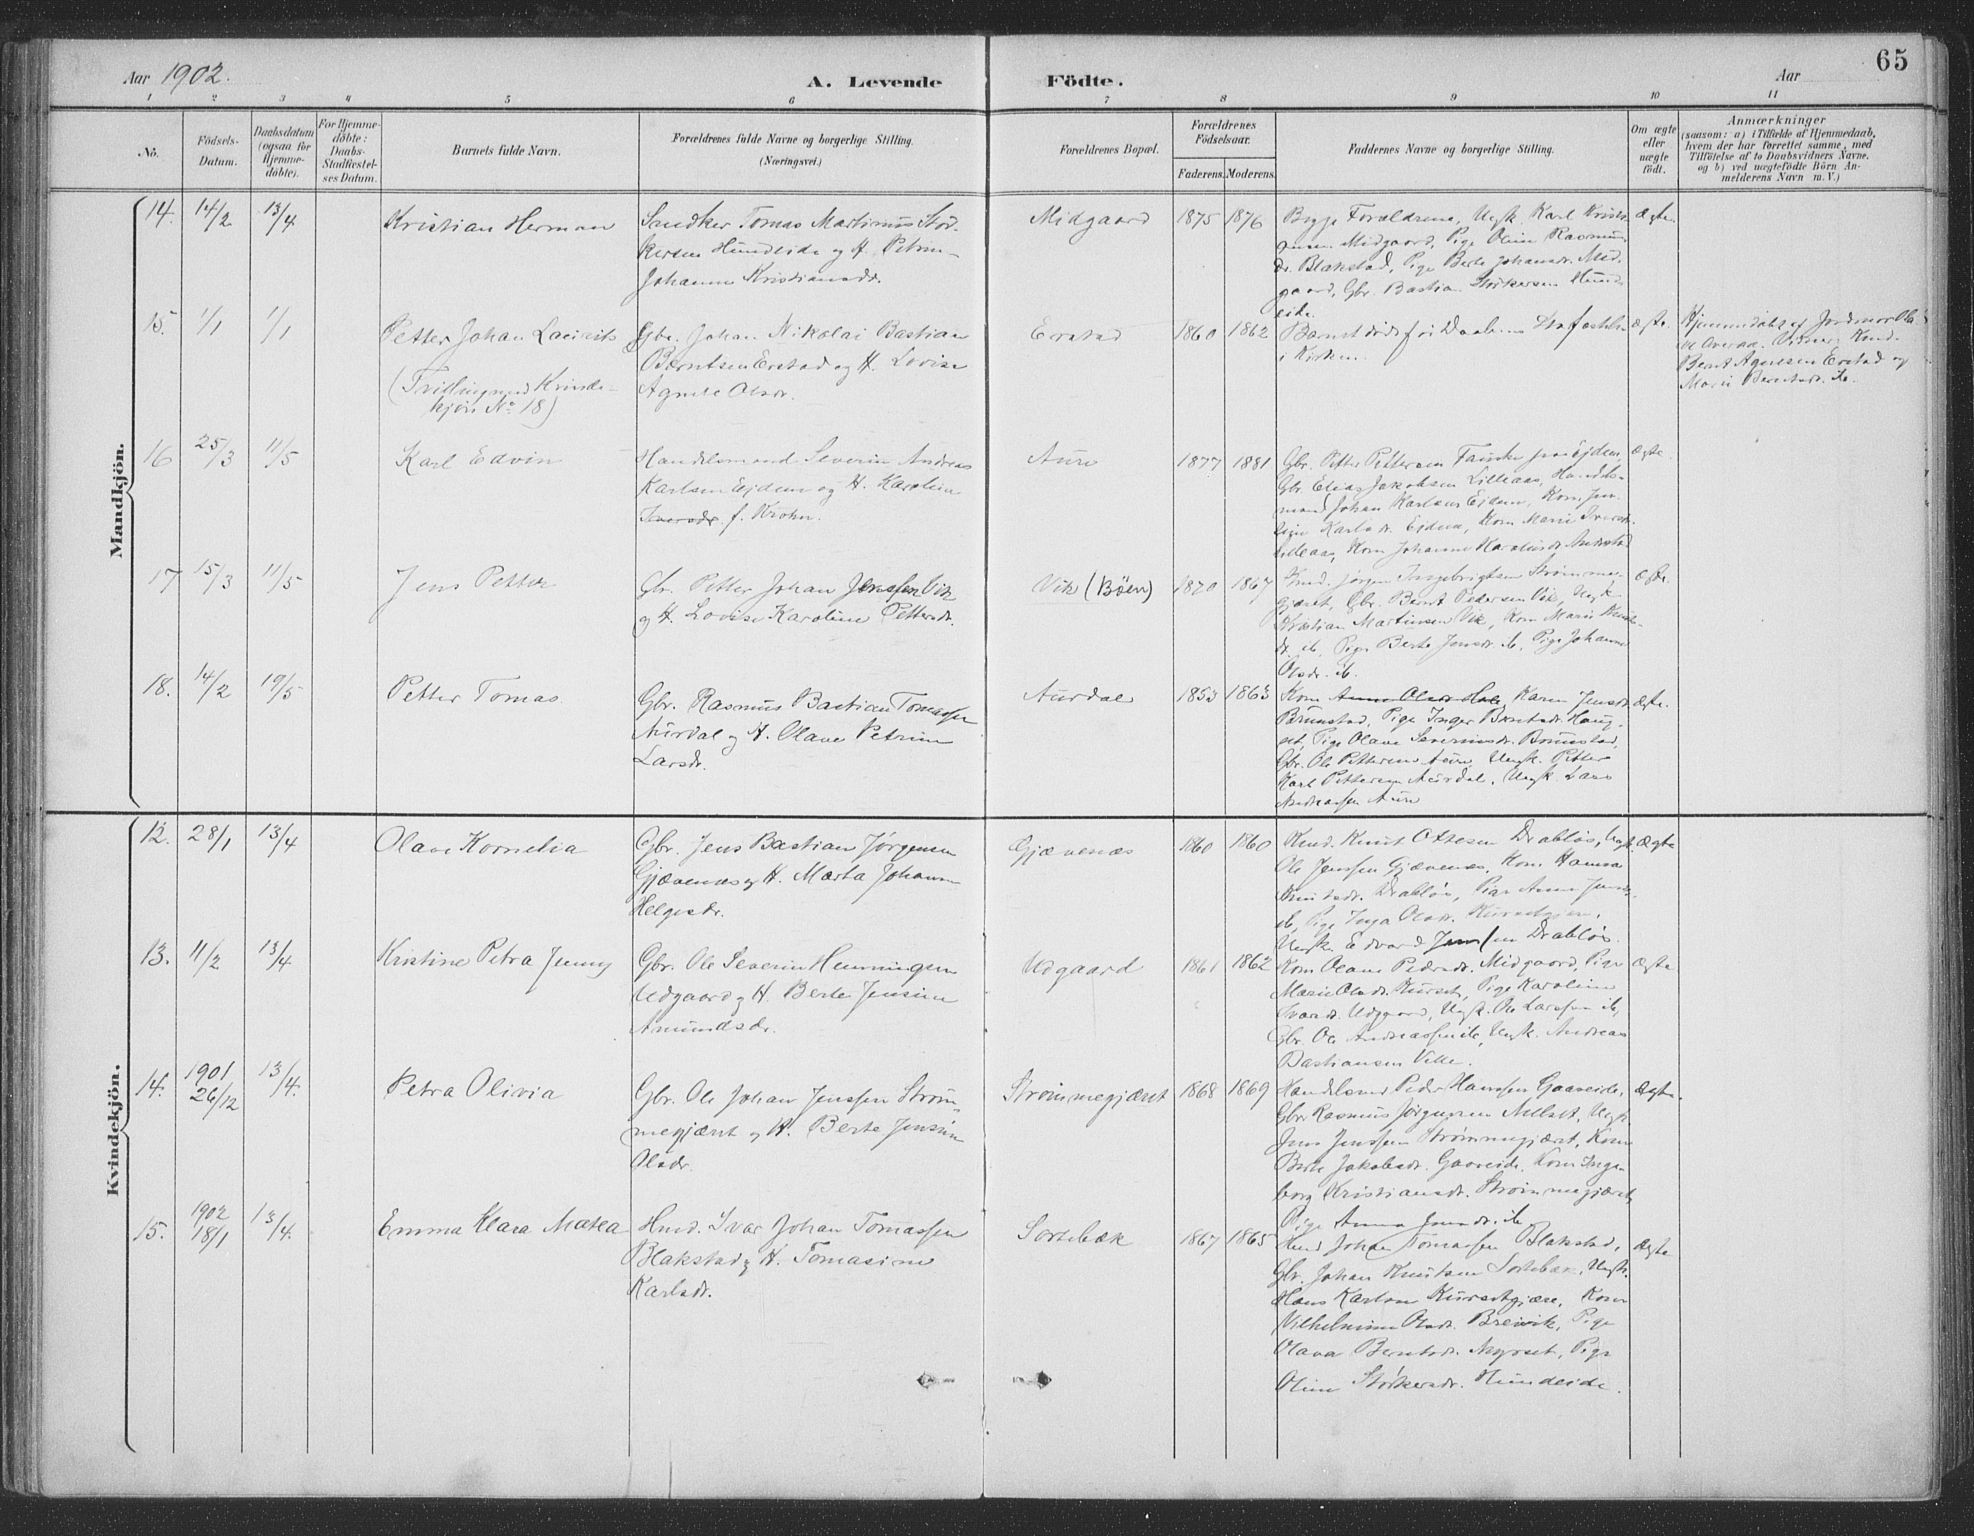 65
Aar 1902.
A. Levende
Födte.
Aar
1 2 3 4 5 6 7 8 9 10 11
No.
Födsels-
Datum.
Daabsdatum
(ogsaa for
Hjemme-
döbte).
For Hjemme-
döbte:
Daabs-
Stadfæstel-
ses Datum.
Barnets fulde Navn.
Forældrenes fulde Navne og borgerlige Stilling.
(Næringsvei.)
Forældrenes Bopæl.
Forældrenes
Födselsaar.
Faderens. Moderens.
Faddernes Navne og borgerlige Stilling.
Om ægte
eller
uægte
födt.
Anmærkninger
(saasom: a) i Tilfælde af Hjemmedaab,
hvem der har forrettet samme, med
Tilföielse af to Daabsvidners Navne.
og b) ved uægtefödte Börn An-
melderens Navn m. V.)
Mandkjön.
14. 14/2 13/4
Kristian Herman
Snedker Tomas Martinus Stor-
kersen Hundeide og H. Petrine
Johanne Kristiansdr.
Midgaard
1875 1876
Begge Forældrene, Ungk. Karl Kristi-
ansen Midgaard, Pige Oline Rasmus-
dr. Blakstad, Pige Berte Johansdr. Mid-
gaard, Gbr. Bastian Störkersen Hund-
eide.
Ægte
15. 1/1 1/1
Petter Johan Laurits
(Tvilling med Kvinde-
kjön No 18)
Gbr. Johan Nikolai Bastian
Berntsen Erstad og H. Lovise
Agnete Olsdr.
Erstad
1860 1862
Barnet döde för Daaben Stadfæstedes
i Kirken.
ægte.
Hjemmedöbt af Jordmor
Overaa. Vidner:
Bernt Agnssen Erstad og
Marie Berntsdr. ib.
16 25/3 11/5
Karl Edvin
Handelsmand Severin Andreas
Karlsen Ejdem og H. Karoline
Iversdr. f. Krohn.
Aure
1877 1881
Gbr. Petter Pettersen Fauske paa Ejdem,
Gbr. Elias Jakobsen Lilleaas, Handels-
mand Johan Karlsen Ejdem, Kone
Karlsdr. Ejdem, Kone Marie Iversdr.
Lilleaas, Kone Johanne
Ægte.
17 15/3 11/5
Jens Petter
Gbr. Petter Johan Jenssen Vik
og H. Lovise Karoline Pettersdr.
Vik (Böen)
1870 1867
Hmd. Jörgen Ingebrigtsen Strömme-
gjæret, Gbr. Bernt Pedersen Vik, Ungk.
Kristian Martinsen Vik, Kone Marie Knuts-
dr. ib, Pige Berte Jensdr. ib, Pige Johanne
Olsdr. ib.
Ægte
18. 14/2 19/5
Petter Tomas
Gbr. Rasmus Bastian Tomassen
Aurdal og H. Olave Petrine
Larsdr.
Aurdal
1853 1863
Kone Anne Olsdr. Karen Jensdr.
Brunstad, Pige Inger Berntsdr. Haug-
set, Pige Olave Severinsdr. Brunstad,
Gbr. Ole Pettersen Aure, Ungk. Petter
Karl Pettersen Aurdal, Ungk. Lars
Andreassen Aure
Ægte.
Kvindekjön.
12. 28/1 13/4
Olave Kornelia
Gbr. Jens Bastian Jörgensen
Gjævenæs og H. Marta Johanne
Helgesdr.
Gjævenæs
1860 1860
Hmd. Knut Ottesen Drablös, Ungk.
Ole Jenssen Gjævenæs, Kone Hanna
Knutsdr. Drablös, Pige Anne Jensdr.
ib, Pige Inga Olsdr. Kursetgjære,
Ungk. Edvard Jenssen Drablös.
Ægte
13. 11/2 13/4
Kristine Petra Jenny
Gbr. Ole Severin Henningsen
Udgaard og H. Berte Jensine
Amundsdr.
Udgaard
1861 1862
Kone Olave Pedersdr. Midgaard, Pige
Marie Olsdr. Kurset, Pige Karoline
Ivarsdr. Udgaard, Ungk. Ole Larssen ib,
Gbr. Ole Andreassen ib, Ungk. Andreas
Bastiansen Velle.
Ægte
14. 1901 26/12 13/4
Petra Olivia
Gbr. Ole Johan Jenssen Ström-
megjæret og H. Berte Jensine
Olsdr.
Strömmegjæret
1868 1869
Handelsmd. Peder Hanssen Gaaseide,
Gbr. Rasmus Jörgensen Ungk.
Jens Jenssen Strömmegjæret, Kone
Berte Jakobsdr. Gaaseide, Kone Inge-
borg Kristiansdr. Strömmegjæret,
Pige Anna Jensdr. ib
Ægte.
15. 1902 18/1 13/4.
Emma Klara Matea
Hmd. Ivar Johan Tomassen
Blakstad og H. Tomasine
Karlsdr.
Sortebæk
1867 1865
Hmd Johan Tomassen Blakstad,
Gbr. Johan Knutsen Sortebæk, Ungk.
Hans Karlsen Kursetgjære, Kone
Vilhelmine Olsdr. Brevik, Pige
Olava Berntsdr. Myrset, Pige
Oline Störkersdr. Hundeide.
Ægte